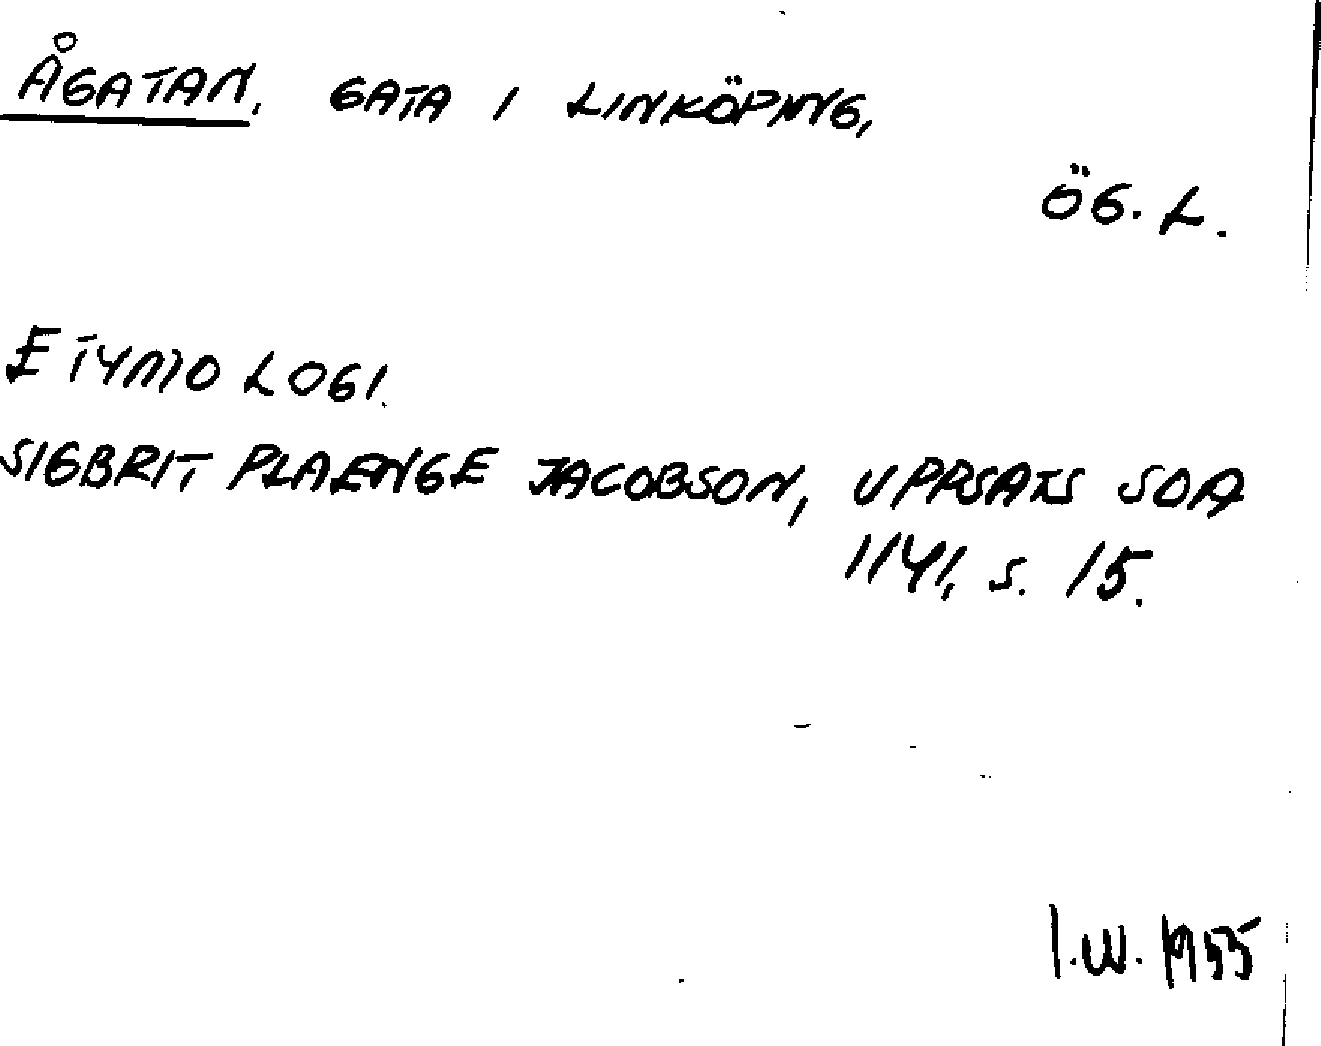 ÅGATAN, GATA I LINKÖPING,
ÖG. L.
ETYMOLOGI.
SIGBRIT PLAENGE JACOBSON, UPPSATS SOA
1141, s. 15.
I.W. 1955